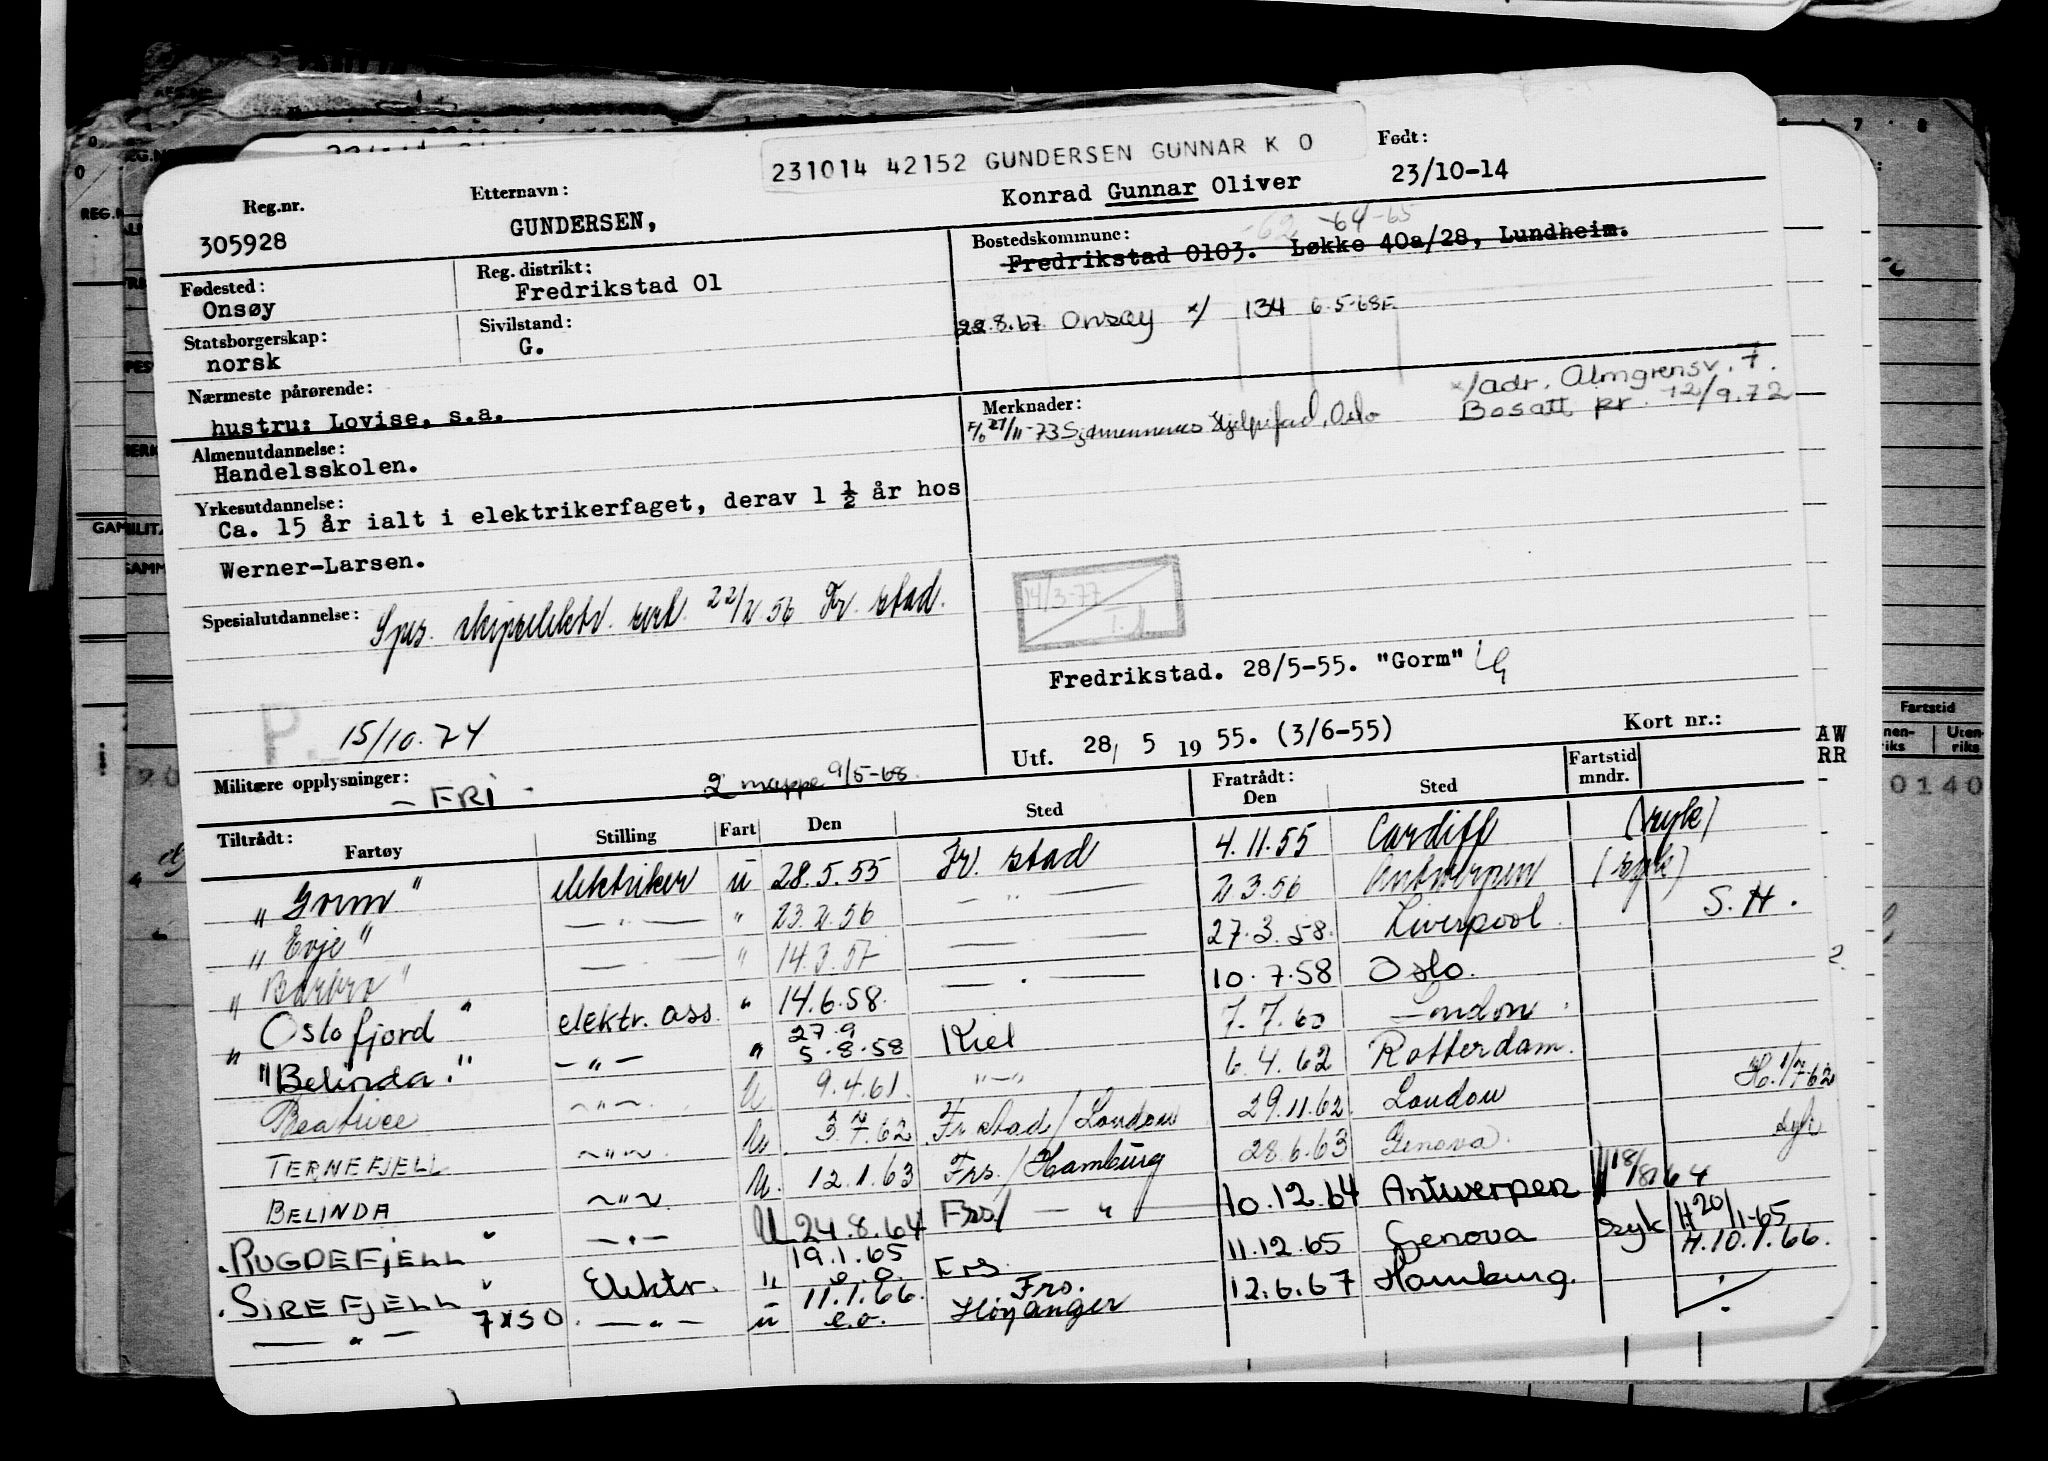 231014 42152 GUNDERSEN GUNNAR K O
Reg.nr. Etternavn: Født:
305928 GUNDERSEN, Konrad Gunnar Oliver 23/10-14
-62 -64-65
Fødested: Reg. distrikt: Bostedskommune:
Onsøy Fredrikstad 01 Fredrikstad 0103. Løkke 40a/28, Lundheim.
Statsborgerskap: Sivilstand:
norsk G.
22.8.67 Onsøy x/ 134 6.5-68F.
Nærmeste pårørende:
hustru: Lovise, s.a.
Merknader: x/adr. Almgrensv. 7.
Bosatt pr. 12/9.72
F/o 27/11-73 Sjømennenes Hjelpefond, Oslo
Almenutdannelse:
Handelsskolen.
Yrkesutdannelse:
Ca. 15 år ialt i elektrikerfaget, derav 1 ½ år hos
Werner-Larsen.
Spesialutdannelse: Spes. skipselektr. sert. 22/2 56 Fr. stad.
14/3-77
Fredrikstad. 28/5-55. "Gorm"
P. 15/10.74
Utf. 28, 5 19 55. (3/6-55) Kort nr.:
Militære opplysninger: - FRI - 2 mappe 9/5-68.
Tiltrådt: Fratrådt: Fartstid
Fartøy Stilling Fart Den Sted Den Sted mndr.
"Gorm" elektriker u 28.5.55 Fr. stad 4.11.55 Cardiff (syk)
"Evje" — " — " 23.2.56 — " — 2.3.56 Antwerpen (syk)
"Barbro" — " — " 14.3.57 — " — 27.3.58. Liverpool. S.H.
"Oslofjord" elektr. ass. " 14.6.58. — " — 10.7.58 Oslo.
27.9
"Belinda." — " — " 5.8.58 Kiel 7.7.60 London
Beatrice — " — U 9.4.61. " — " 6.4.62 Rotterdam.
TERNEFJELL — " — U. 3.7.62 Fr.stad/London 29.11.62. London H. 1/7-62
BELINDA — " — U. 12.1.63 Frs./Hamburg 28.6.63 Genova. syk
"RUGDEFJELL" — " — U 24.8.64 Frs/ — " — 10.12.64 Antwerpen H 18/8 64
19.1.65
"SIREFJELL" Elektr. " e.o. Frs. 11.12.65 Genova syk H 20/1-65
11.1.66. Frs. H. 10.1.66.
— " — 7x50 — " — u e.o. Høyanger 12.6.67 Hamburg.
Fartstid
0140